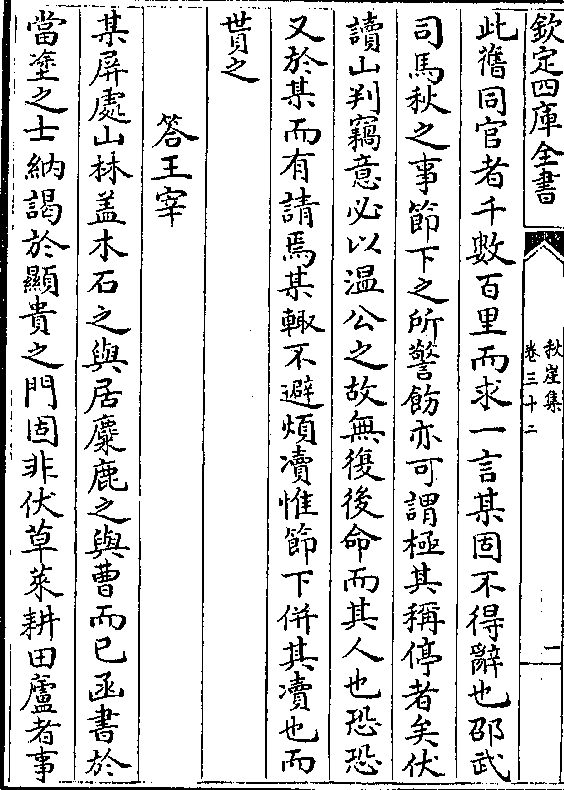 欽定四庫全書
秋崖集
卷三十二
一
此舊同官者千數百里而求一言某固不得辭也邵武
司馬秋之事節下之所警飭亦可謂極其稱停者矣伏
讀山判竊意必以温公之故無復後命而其人也恐恐
又於某而有請焉某輙不避煩凟惟節下併其凟也而
貰之
答王宰
某屏處山林盖木石之與居麋鹿之與曹而已函書於
當塗之士納謁於顯貴之門固非伏草萊耕田廬者事